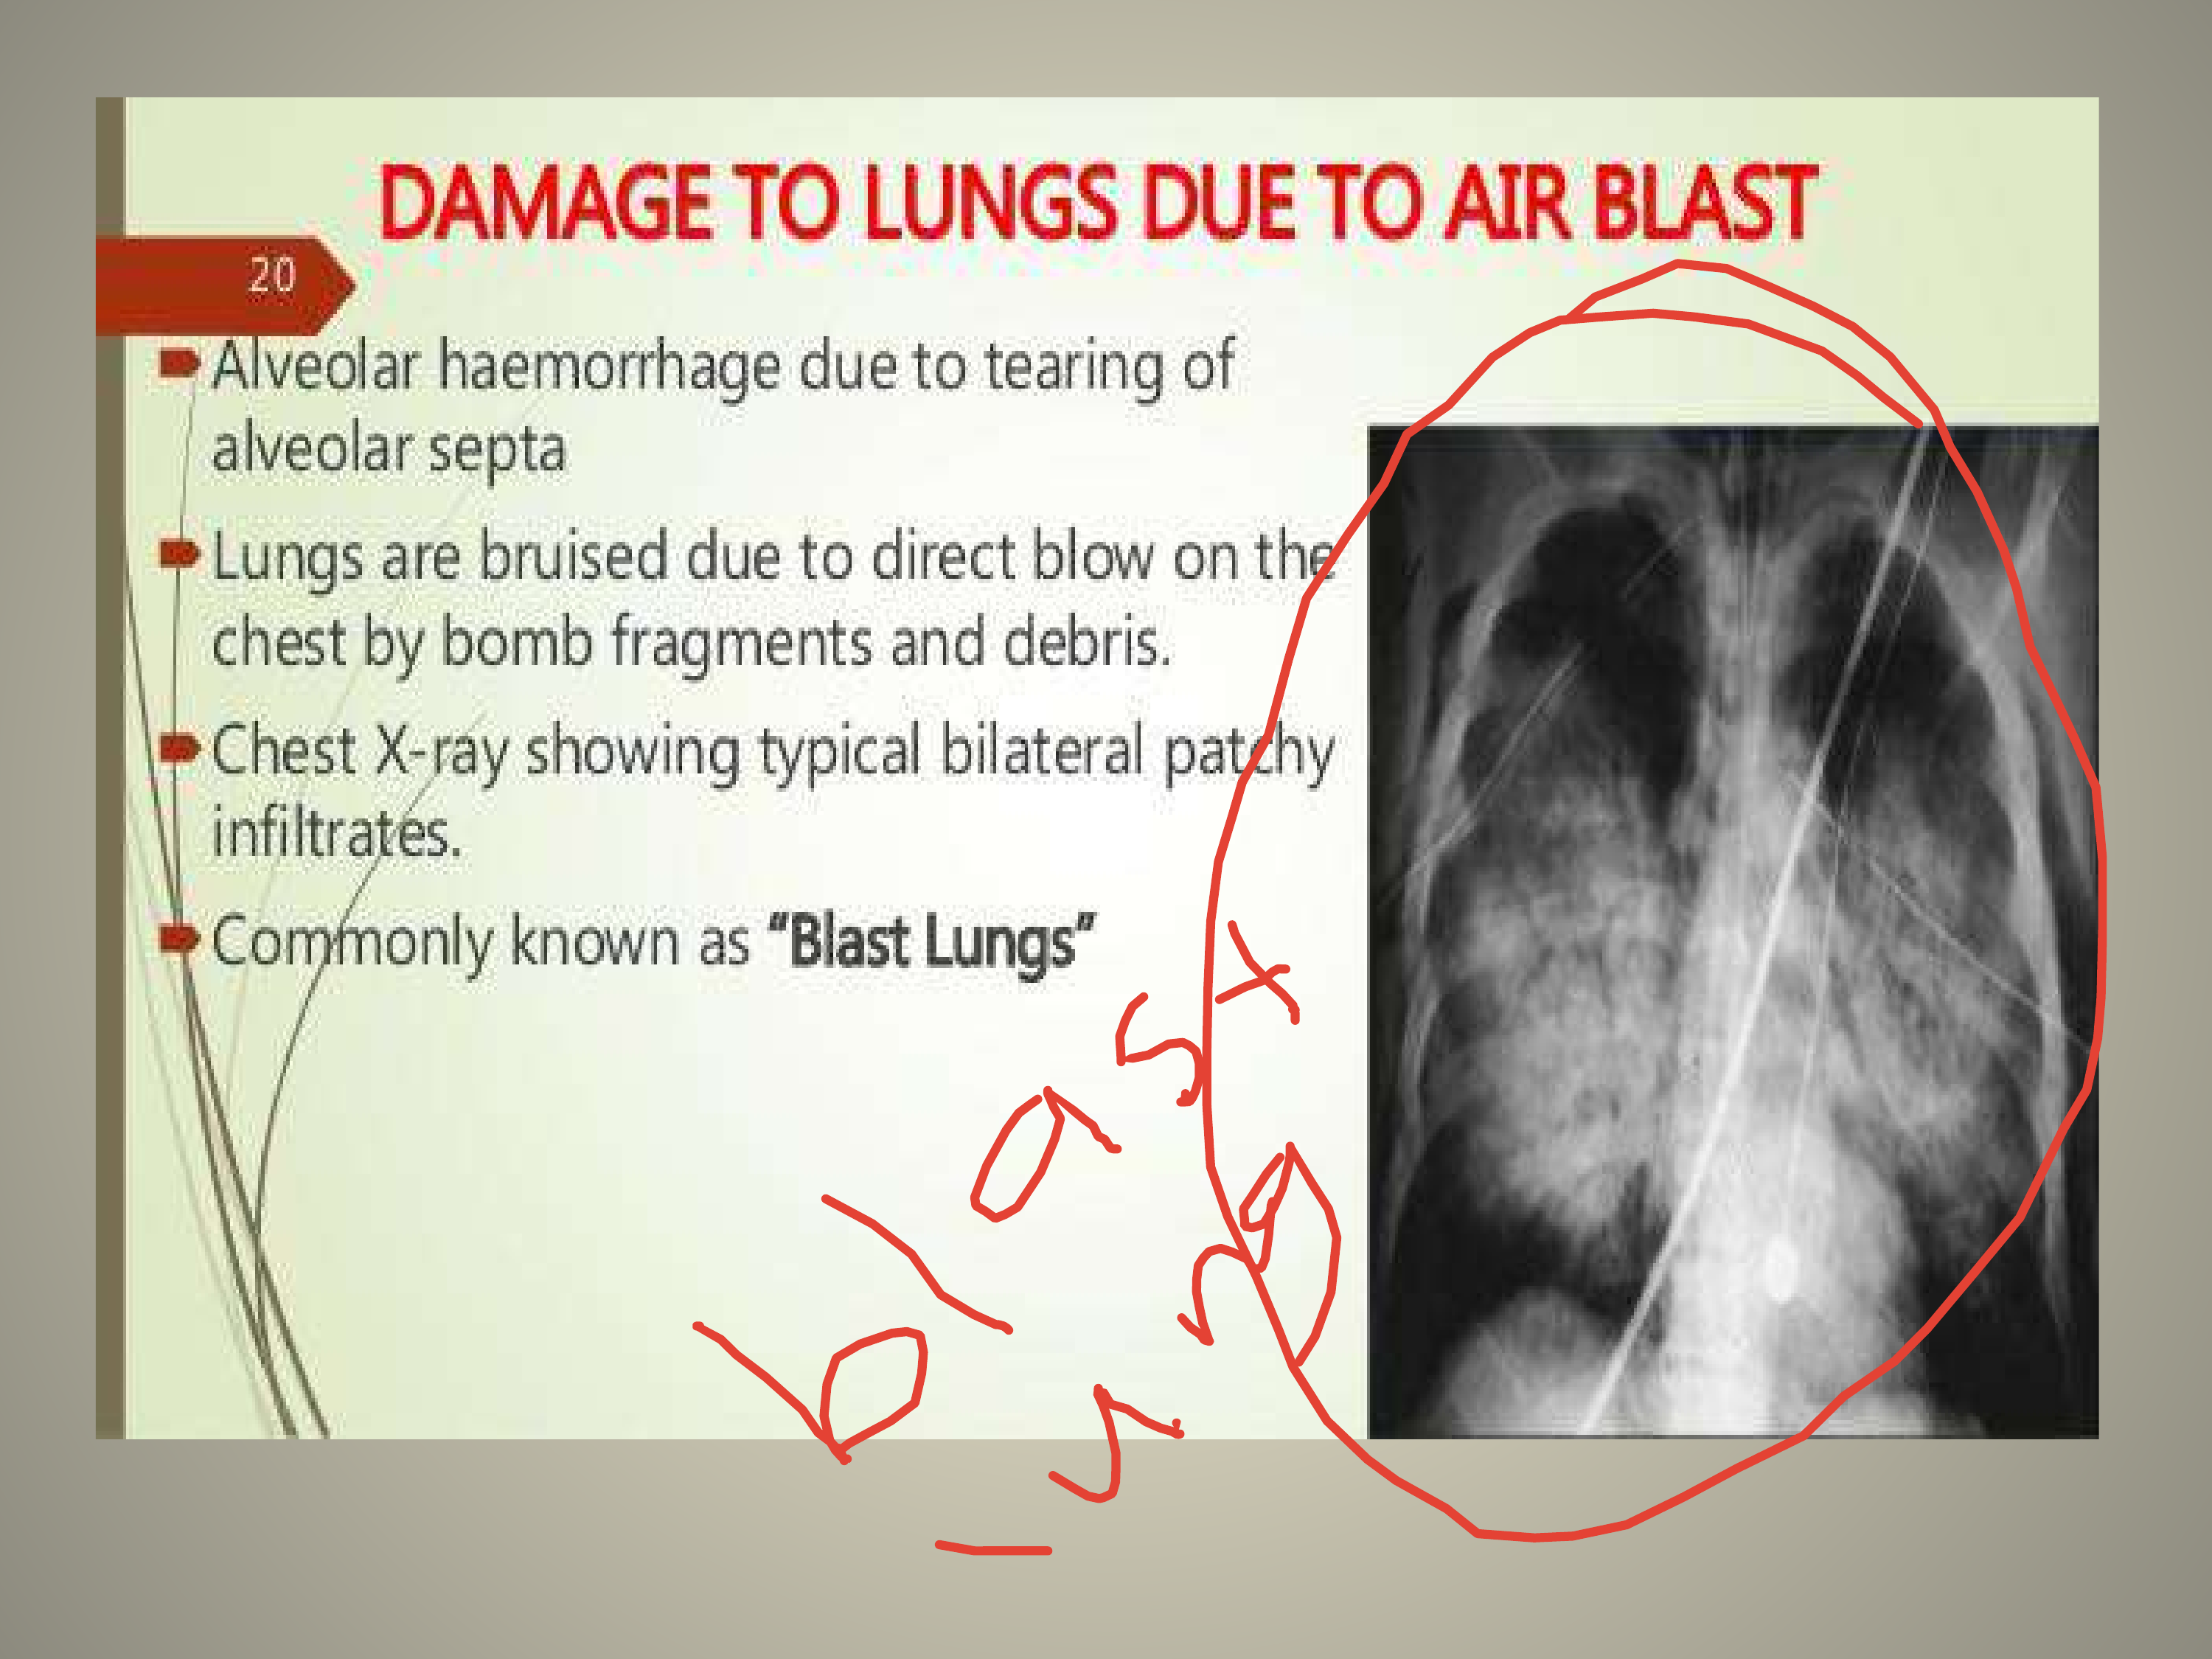 DAMAGE TO LUNGS DUE TO AIR BLAST
20
Alveolar haemorrhage due to tearing of
alveolar septa
Lungs are bruised due to direct blow on the
chest by bomb fragments and debris.
Chest X-ray showing typical bilateral patchy
infiltrates.
Commonly known as “Blast Lungs”
blast
lung